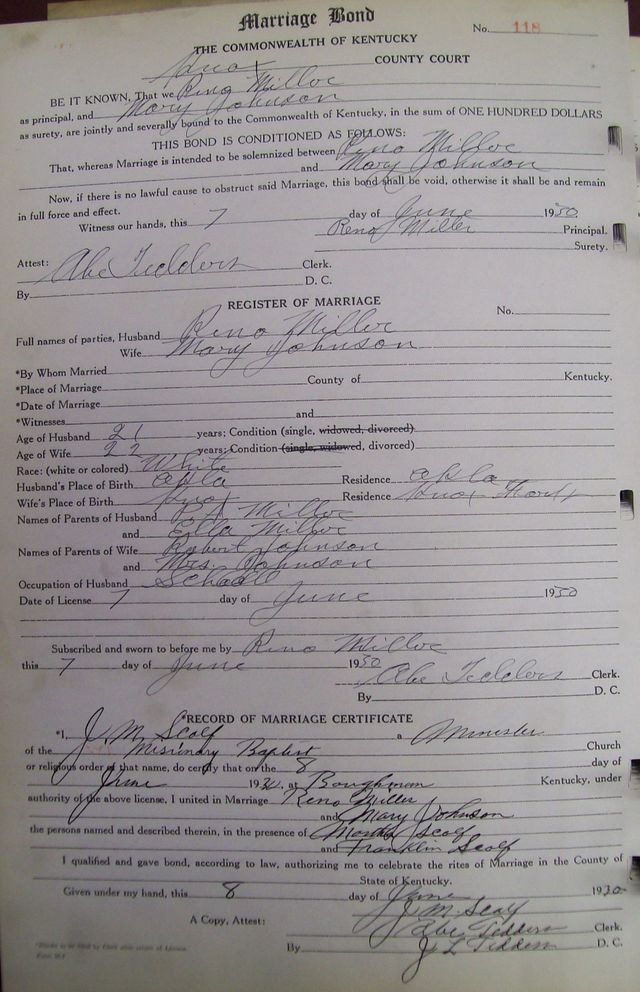 Marriage Bond
No. 118
THE COMMONWEALTH OF KENTUCKY
Knox COUNTY COURT
BE IT KNOWN, That we Reno Miller
as principal, and Mary Johnson
as surety, are jointly and severally bound to the Commonwealth of Kentucky, in the sum of ONE HUNDRED DOLLARS
THIS BOND IS CONDITIONED AS FOLLOWS:
That, whereas Marriage is intended to be solemnized between Reno Miller
and Mary Johnson
Now, if there is no lawful cause to obstruct said Marriage, this bond shall be void, otherwise it shall be and remain
in full force and effect.
Witness our hands, this 7 day of June 1930
Reno Miller Principal.
Surety.
Attest: Abe Tedders Clerk.
By D. C.
REGISTER OF MARRIAGE
No.
Full names of parties, Husband Reno Miller
Wife Mary Johnson
*By Whom Married
*Place of Marriage County of Kentucky.
*Date of Marriage
*Witnesses and
Age of Husband 21 years; Condition (single, widowed, divorced)
Age of Wife 22 years; Condition (single, widowed, divorced)
Race: (white or colored) White
Husband's Place of Birth Residence
Wife's Place of Birth Knox Residence Knox
Names of Parents of Husband Miller
and Ella Miller
Names of Parents of Wife Robert Johnson
and Mrs. Johnson
Occupation of Husband
Date of License 7 day of June 1930
Subscribed and sworn to before me by Reno Miller
this 7 day of June 1930
Abe Tedders Clerk.
By D. C.
*RECORD OF MARRIAGE CERTIFICATE
*I, J. M. Scalf a Minister
of the Missionary Baptist Church
or religious order of that name, do certify that on the 8 day of
June 1930, at Boughman Kentucky, under
authority of the above license, I united in Marriage Reno Miller
and Mary Johnson
the persons named and described therein, in the presence of Scalf
and Franklin Scalf
I qualified and gave bond, according to law, authorizing me to celebrate the rites of Marriage in the County of
State of Kentucky.
Given under my hand, this 8 day of June 1930
J. M. Scalf
A Copy, Attest: Abe Tedders Clerk.
By J L Tedders D. C.